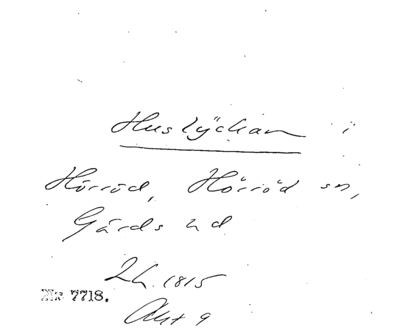 Huslyckan i
Hörröd, Hörröd sn,
Gärds hd
Lh. 1815
No 7718.
Akt 9